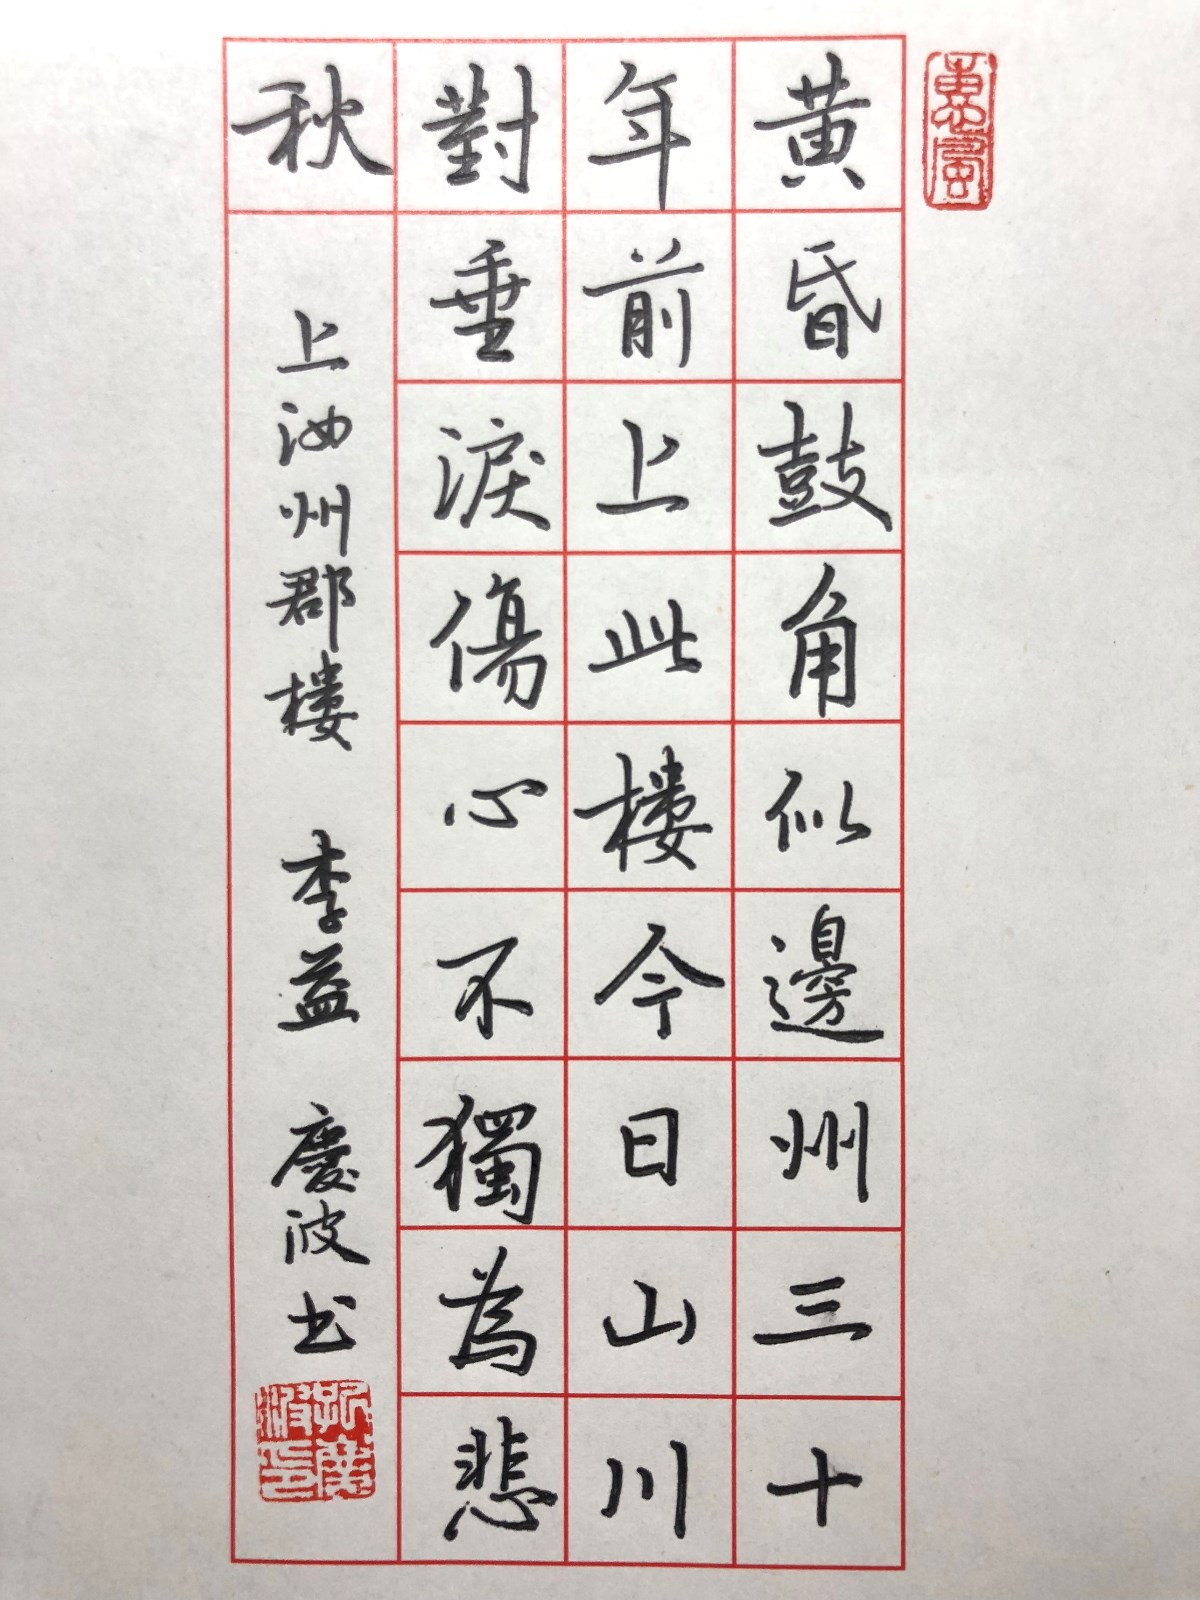 黄昏鼓角似邊州三十
年前上此樓今日山川
對垂淚傷心不獨為悲
秋
上汝州郡樓 李益 慶波书
惠風